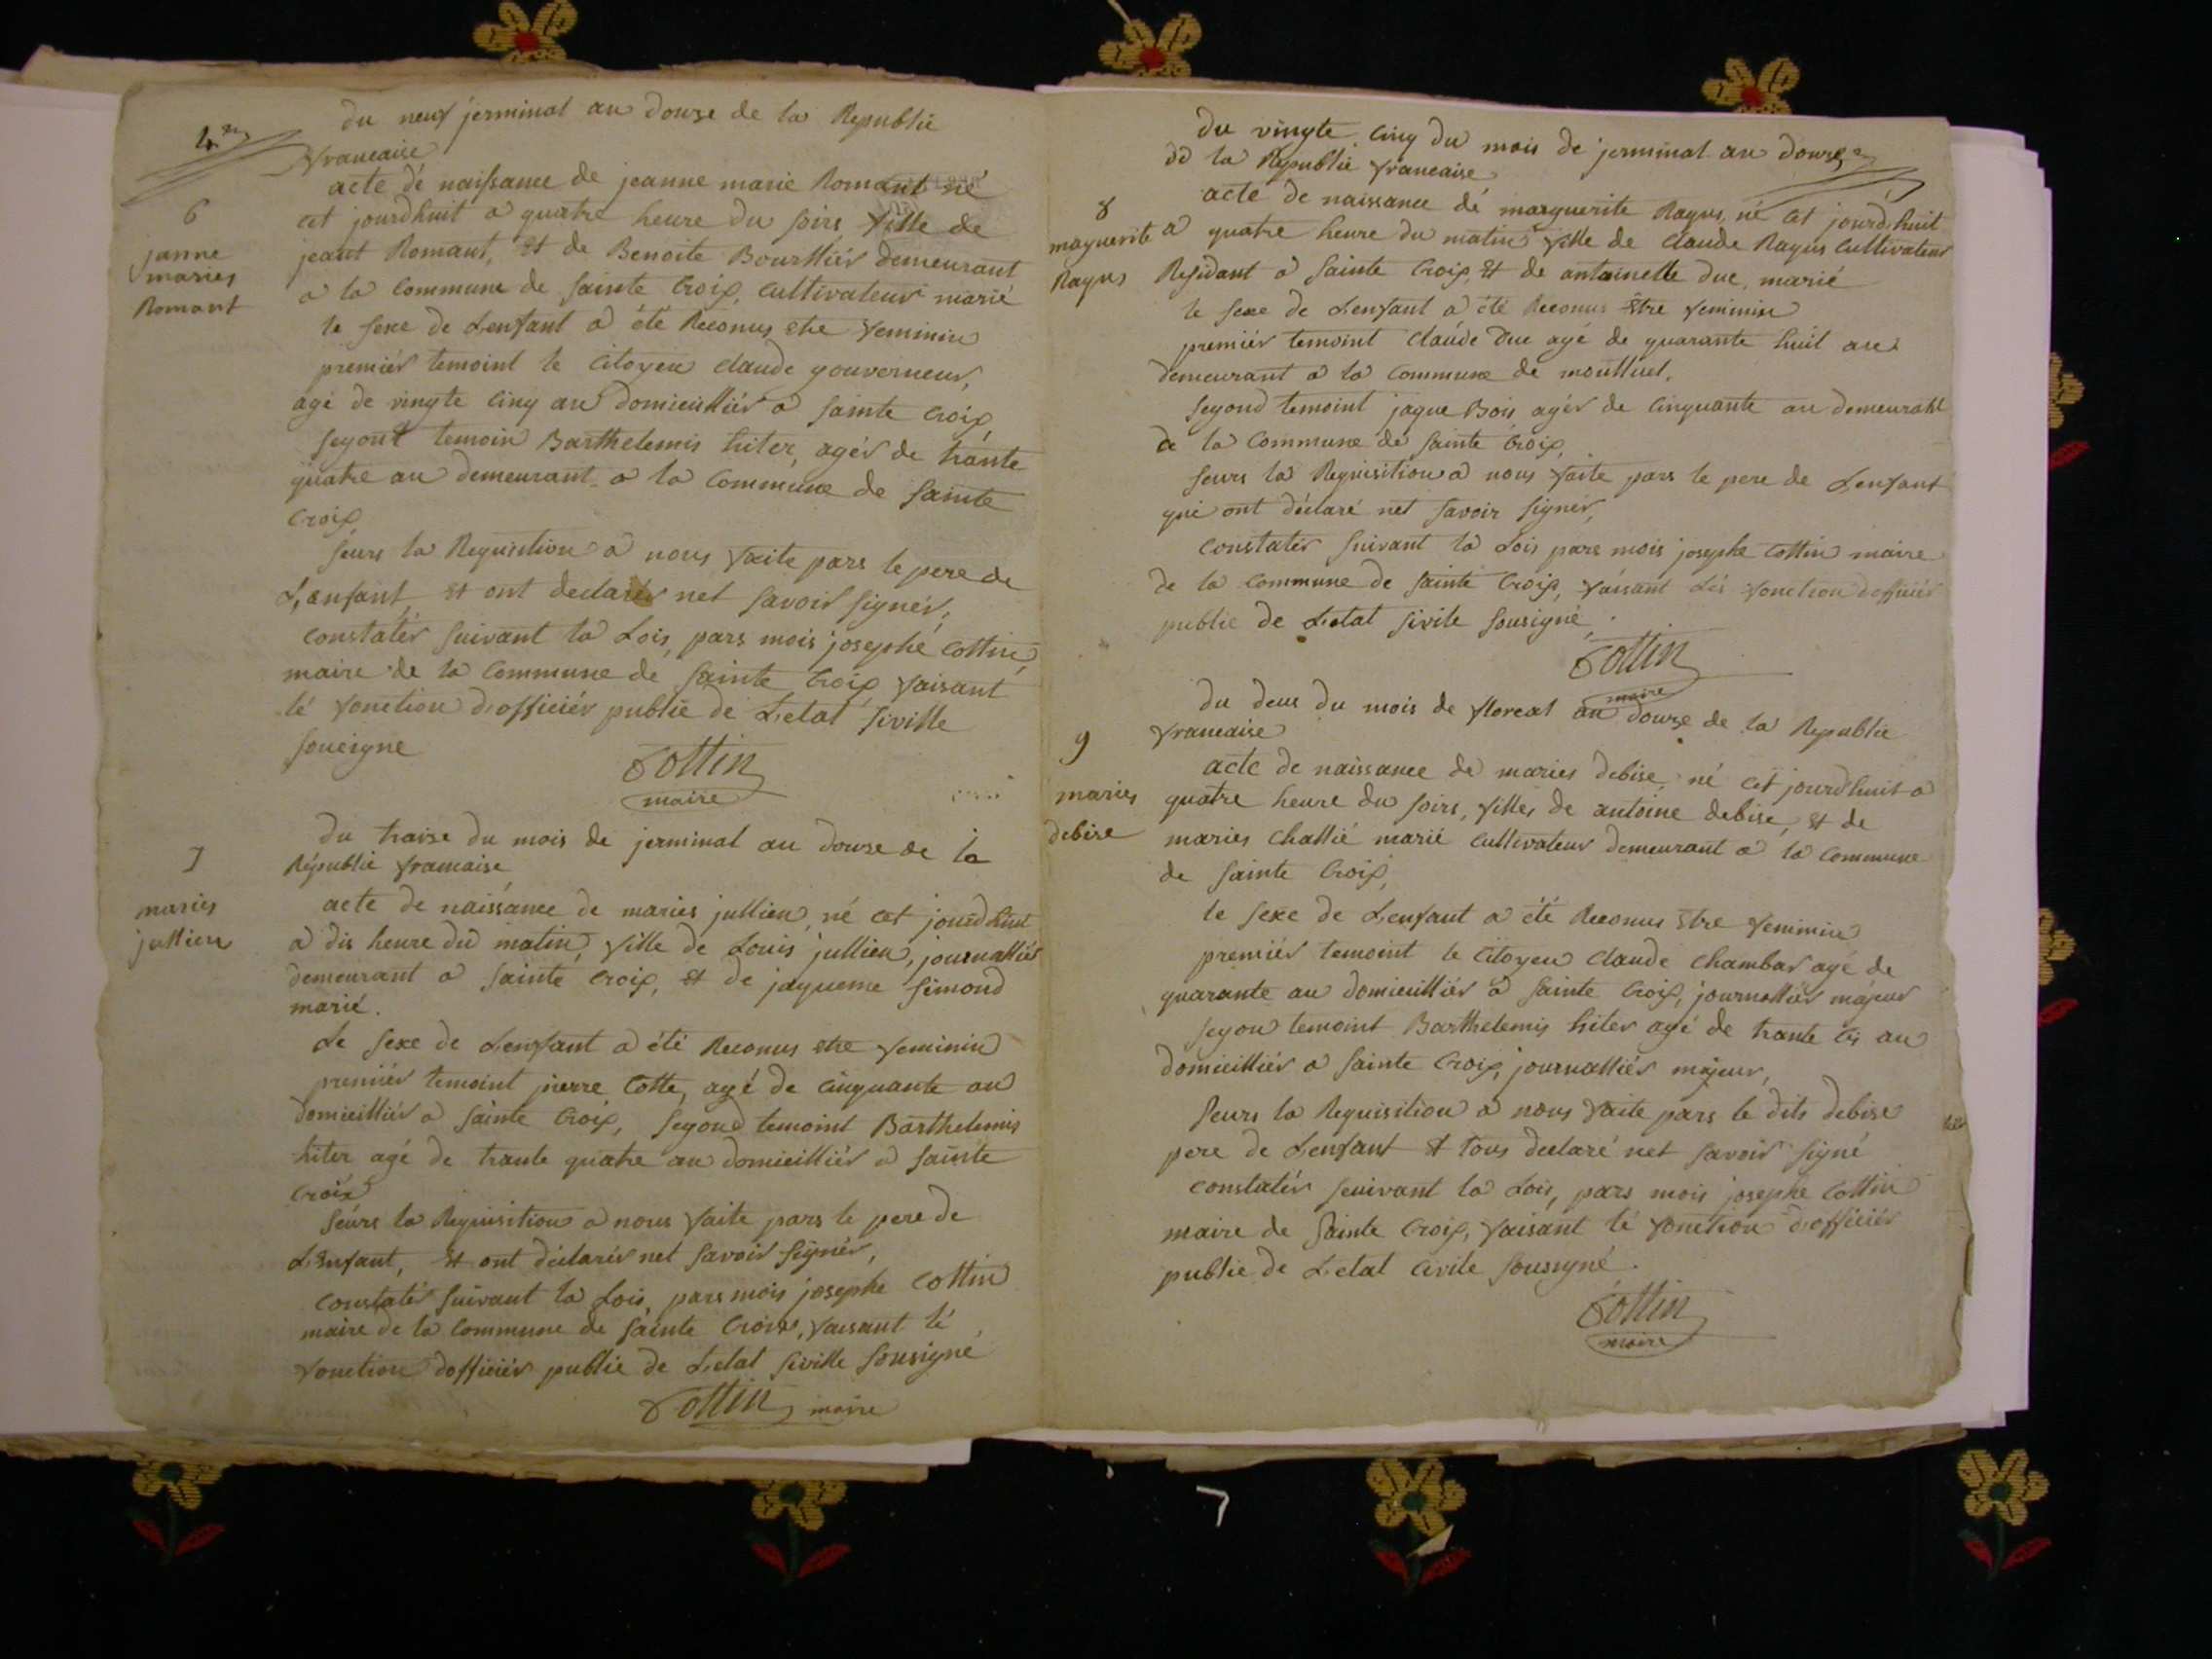 du neuf jerminal an douze de la Republic
francaise
6
janne
maries
Romant
acte de naissance de jeanne marie Romant né
cet jourdhuit a quatre heure du soirs fille de
jeant Romant, et de Benoite Bourllier demeurant
a la Commune de sainte Croix, Cultivateur marié
le sexe de Lenfant a été Reconus etre feminin
premiér temoint le Citoyen claude gouverneur,
agé de vingte cinq an domicilliér a sainte Croix,
segont temoin Barthelemis hiter, agér de trante
quatre an demeurant a la Commune de sainte
Croix,
seurs la Requisition a nous faite pars le pere de
L'enfant et ont declarér net savoir signér,
constatér suivant la Lois, pars mois josephe Cottin,
maire de la Commune de sainte Croix faisant
lé fonction d'officiér public de L'etat siville
sousigne
Cottin
maire
7
maries
jullien
du traise du mois de jerminal an douze de la
Républic francaise
acte de naissance de maries jullien, né cet jourdhuit
a dis heure du matin, fille de Louis jullien, journalliér
demeurant a sainte croix, et de jaqueme simond
marié.
Le sexe de Lenfant a été Reconus etre feminin
premiér temoint pierre Cotte, agé de cinquante an
domicilliér a sainte Croix, segond temoint Barthelemis
hiter agé de trante quatre an domicilliér a sainte
Croix
seurs la Requisition a nous faite pars le pere de
L'Enfant, et ont déclarér net savoir signér,
constatér suivant la Lois, pars mois josephe Cottin
maire de la Commune de sainte Croix, faisant lé
fonction dofficiér public de L'etat siville sousigné
Cottin maire
du vingte cinq du mois de jerminal an douze
de la Republic francaise
8
maguerite
Ragus
acte de naissance dé marguerite Ragus, né cet jourd'huit
a quatre heure du matin fille de claude Ragus Cultivateur
Residant a sainte Croix, et de antoinette duc, marié
le sexe de Lenfant a été Reconus être feminin
premiér temoint claude Duc agé de quarante huit an
demeurant a la Commune de montluel.
segond temoint jaque Bois agér de cinquante an demeurant
a la Commune de sainte Croix,
seurs la Requisition a nous faite pars le pere de Lenfant
qui ont déclaré net savoir signér,
constatér suivant la Lois pars mois josephe Cottin maire
de la Commune de sainte Croix, faisant lés fonction dofficiér
public de L'etat sivile sousigné,
Cottin
maire
du deus du mois de floreal an douze de la Republic
francaise
9
maries
debise
acte de naissance de maries debise, né cet jourdhuit a
quatre heure du soirs, filles de antoine debise, et de
maries Challié marié cultivateur demeurant a la Commune
de sainte Croix,
le sexe de L'enfant a été Reconus etre feminin
premiér temoint le Citoyen claude Chambar agé de
quarante an domicilliér a sainte Croix, journalliér majeur
segon temoint Barthelemis hiter agé de trante cis an
domicilliér a sainte Croix, journalliér majeur,
seurs la Requisition a nous faite pars le dits debise
pere de Lenfant et tous declaré net savoir signé
constatér seuivant la Lois, pars mois josephe Cottin
maire de sainte Croix, faisant lé fonction d'officiér
public de L'etat civile soussigné.
Cottin
maire